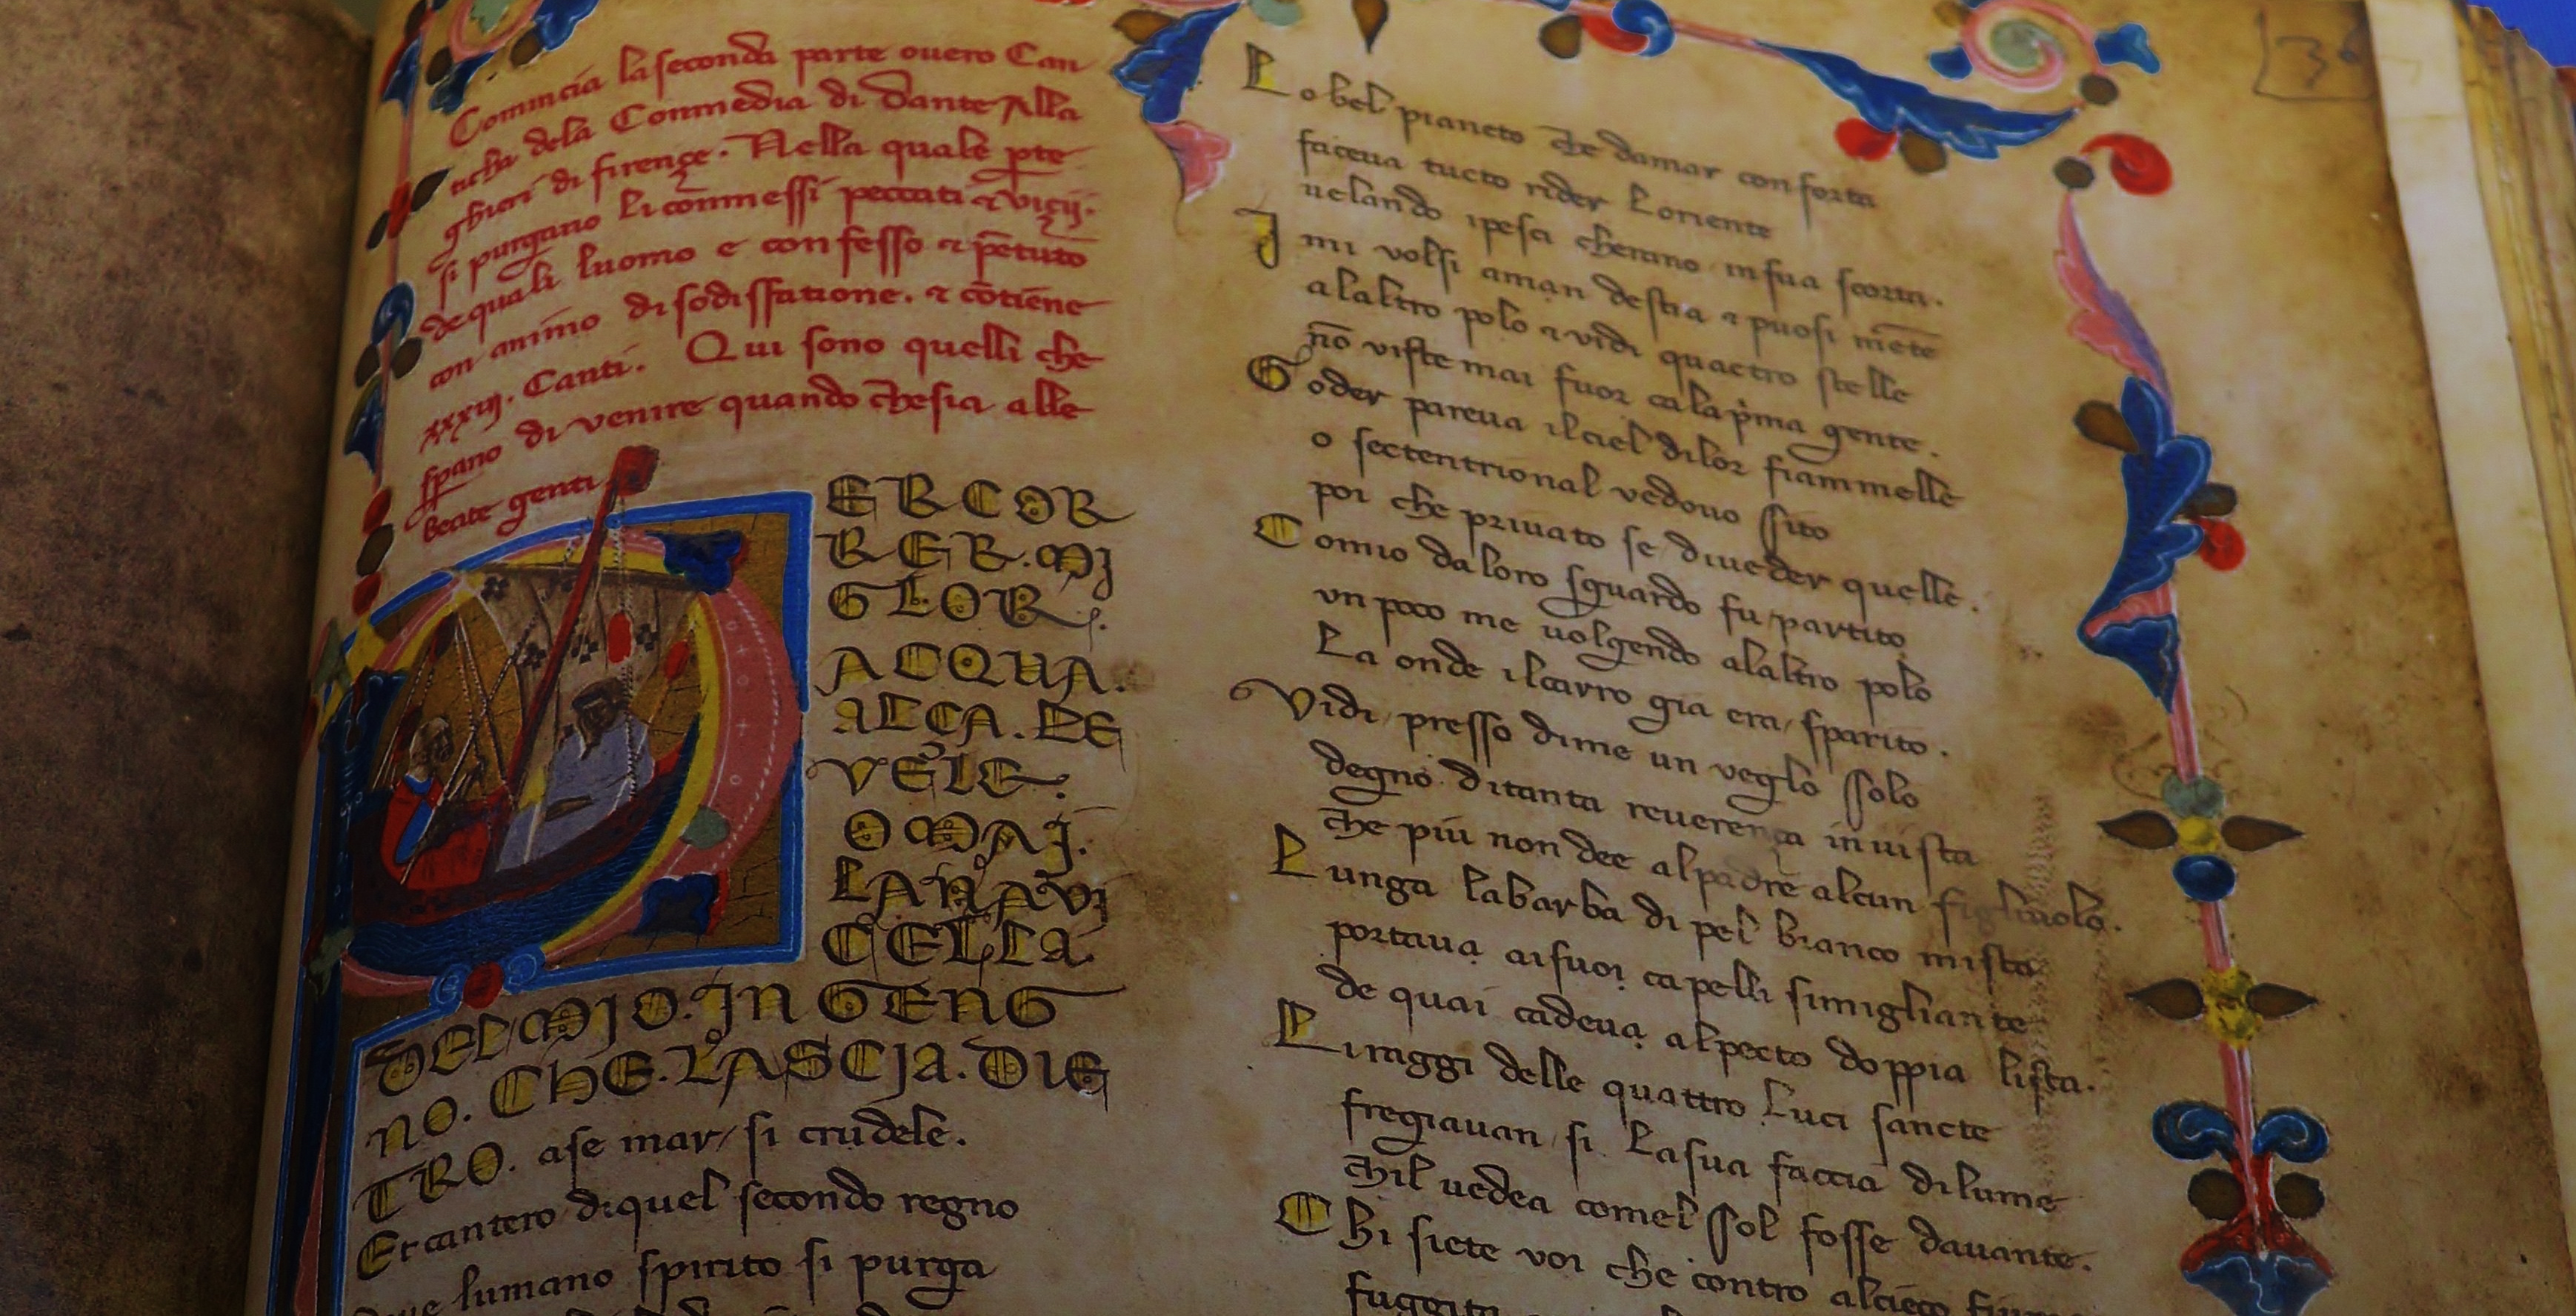 Comincia la seconda parte overo Can
ticha dela Conmedia di Dante Alla
ghieri di firençe. Nella quale pte
si purgano li cōmessi peccati ⁊ viçij.
de quali luomo e confesso ⁊ pētuto
con animo di sodisfatione. ⁊ cōtiene
xxxiij. Canti. Qui sono quelli che
sperano di venire quando che sia alle
beate genti
ER COR
RER. MJ
GLOR.
ACQUA.
ALCA. LE
VELE.
OMAJ.
LA NAVJ
CELLA.
DEL MJO. JNGENG
NO. CHE. LASCJA. DIE
TRO. ase mar si crudele.
Et cantero di quel secondo regno
lumano spirito si purga
Lo bel pianeto che damar conforta
faceva tucto rider Loriente
uelando ipesci cherano in sua scorta.
J mi volsi aman destra ⁊ puosi mēte
alaltro polo ⁊ vidi quactro stelle
nō viste mai fuor cala pma gente.
Goder pareva ilciel dilor fiammelle
o sectentrional vedovo sito
poi che privato se diveder quelle.
Comio daloro sguardo fu partito
un poco me volgendo alaltro polo
La onde ilcarro gia era sparito.
Vidi presso dime un veglo solo
degno ditanta reverença invista
che piu non dee alpadre alcun figliuolo.
Lunga labarba di pel bianco mista
portava aisuoi capelli simigliante
de quai cadeva alpecto doppia lista.
Li raggi delle quattro Luci sancte
fregiavan si Lasua faccia dilume
chil vedea comel sol fosse davante.
Chi siete voi che contro alcieco